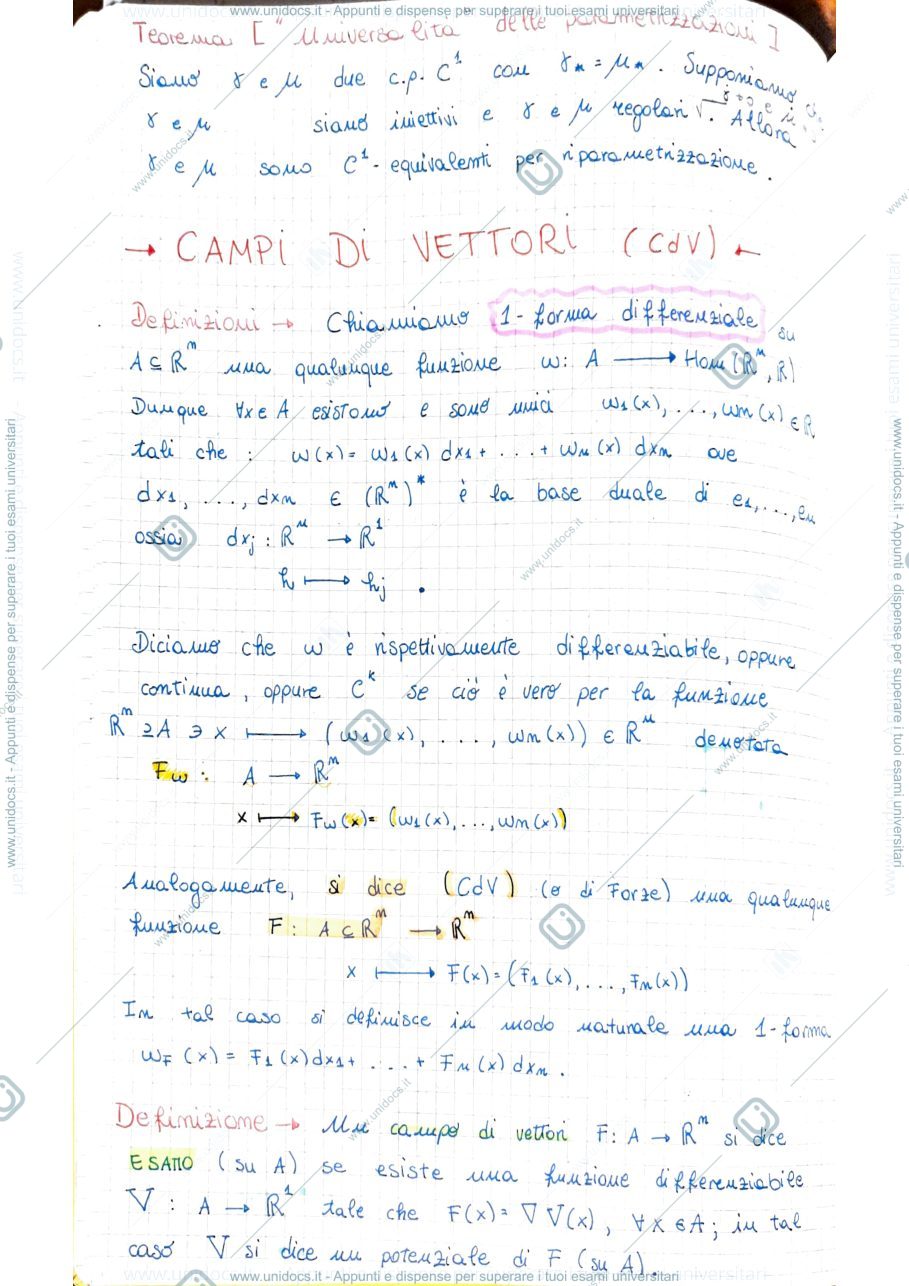 www.unidocs.it - Appunti e dispense per superare i tuoi esami universitari
Teorema [ "Universalità delle parametrizzazioni ]
Siano γ e μ due c.p. C¹ con γₙ = μₙ . Supponiamo
γ e μ siano iniettivi e γ e μ regolari . Allora
γ e μ sono C¹- equivalenti per riparametrizzazione .
→ CAMPI DI VETTORI (CdV) ←
Definizioni → Chiamiamo 1-forma differenziale su
A ⊆ Rⁿ una qualunque funzione w: A ⟶ Hom (Rⁿ, R)
Dunque ∀x∈A esistono e sono unici w₁(x), ..., wn(x) ∈ R
tali che : w(x) = w₁(x) dx₁ + ... + wn(x) dxn ove
dx₁, ..., dxn ∈ (Rⁿ)* è la base duale di e₁, ..., en
ossia dxⱼ : Rⁿ → R¹
h ⟼ hⱼ .
Diciamo che w è rispettivamente differenziabile, oppure
continua, oppure Cᵏ se ciò è vero per la funzione
Rⁿ ⊇ A ∋ x ⟼ (w₁(x), ..., wn(x)) ∈ Rⁿ denotata
Fw : A → Rⁿ
x ⟼ Fw(x) = (w₁(x), ..., wn(x))
Analogamente, si dice (CdV) (o di Forze) una qualunque
funzione F: A ⊆ Rⁿ → Rⁿ
x ⟼ F(x) = (F₁(x), ..., Fn(x))
In tal caso si definisce in modo naturale una 1-forma
wF (x) = F₁(x)dx₁ + ... + Fn(x) dxn .
Definizione → Un campo di vettori F: A → Rⁿ si dice
ESATTO (su A) se esiste una funzione differenziabile
V : A → R¹ tale che F(x) = ∇V(x), ∀x∈A; in tal
caso V si dice un potenziale di F (su A).
www.unidocs.it - Appunti e dispense per superare i tuoi esami universitari